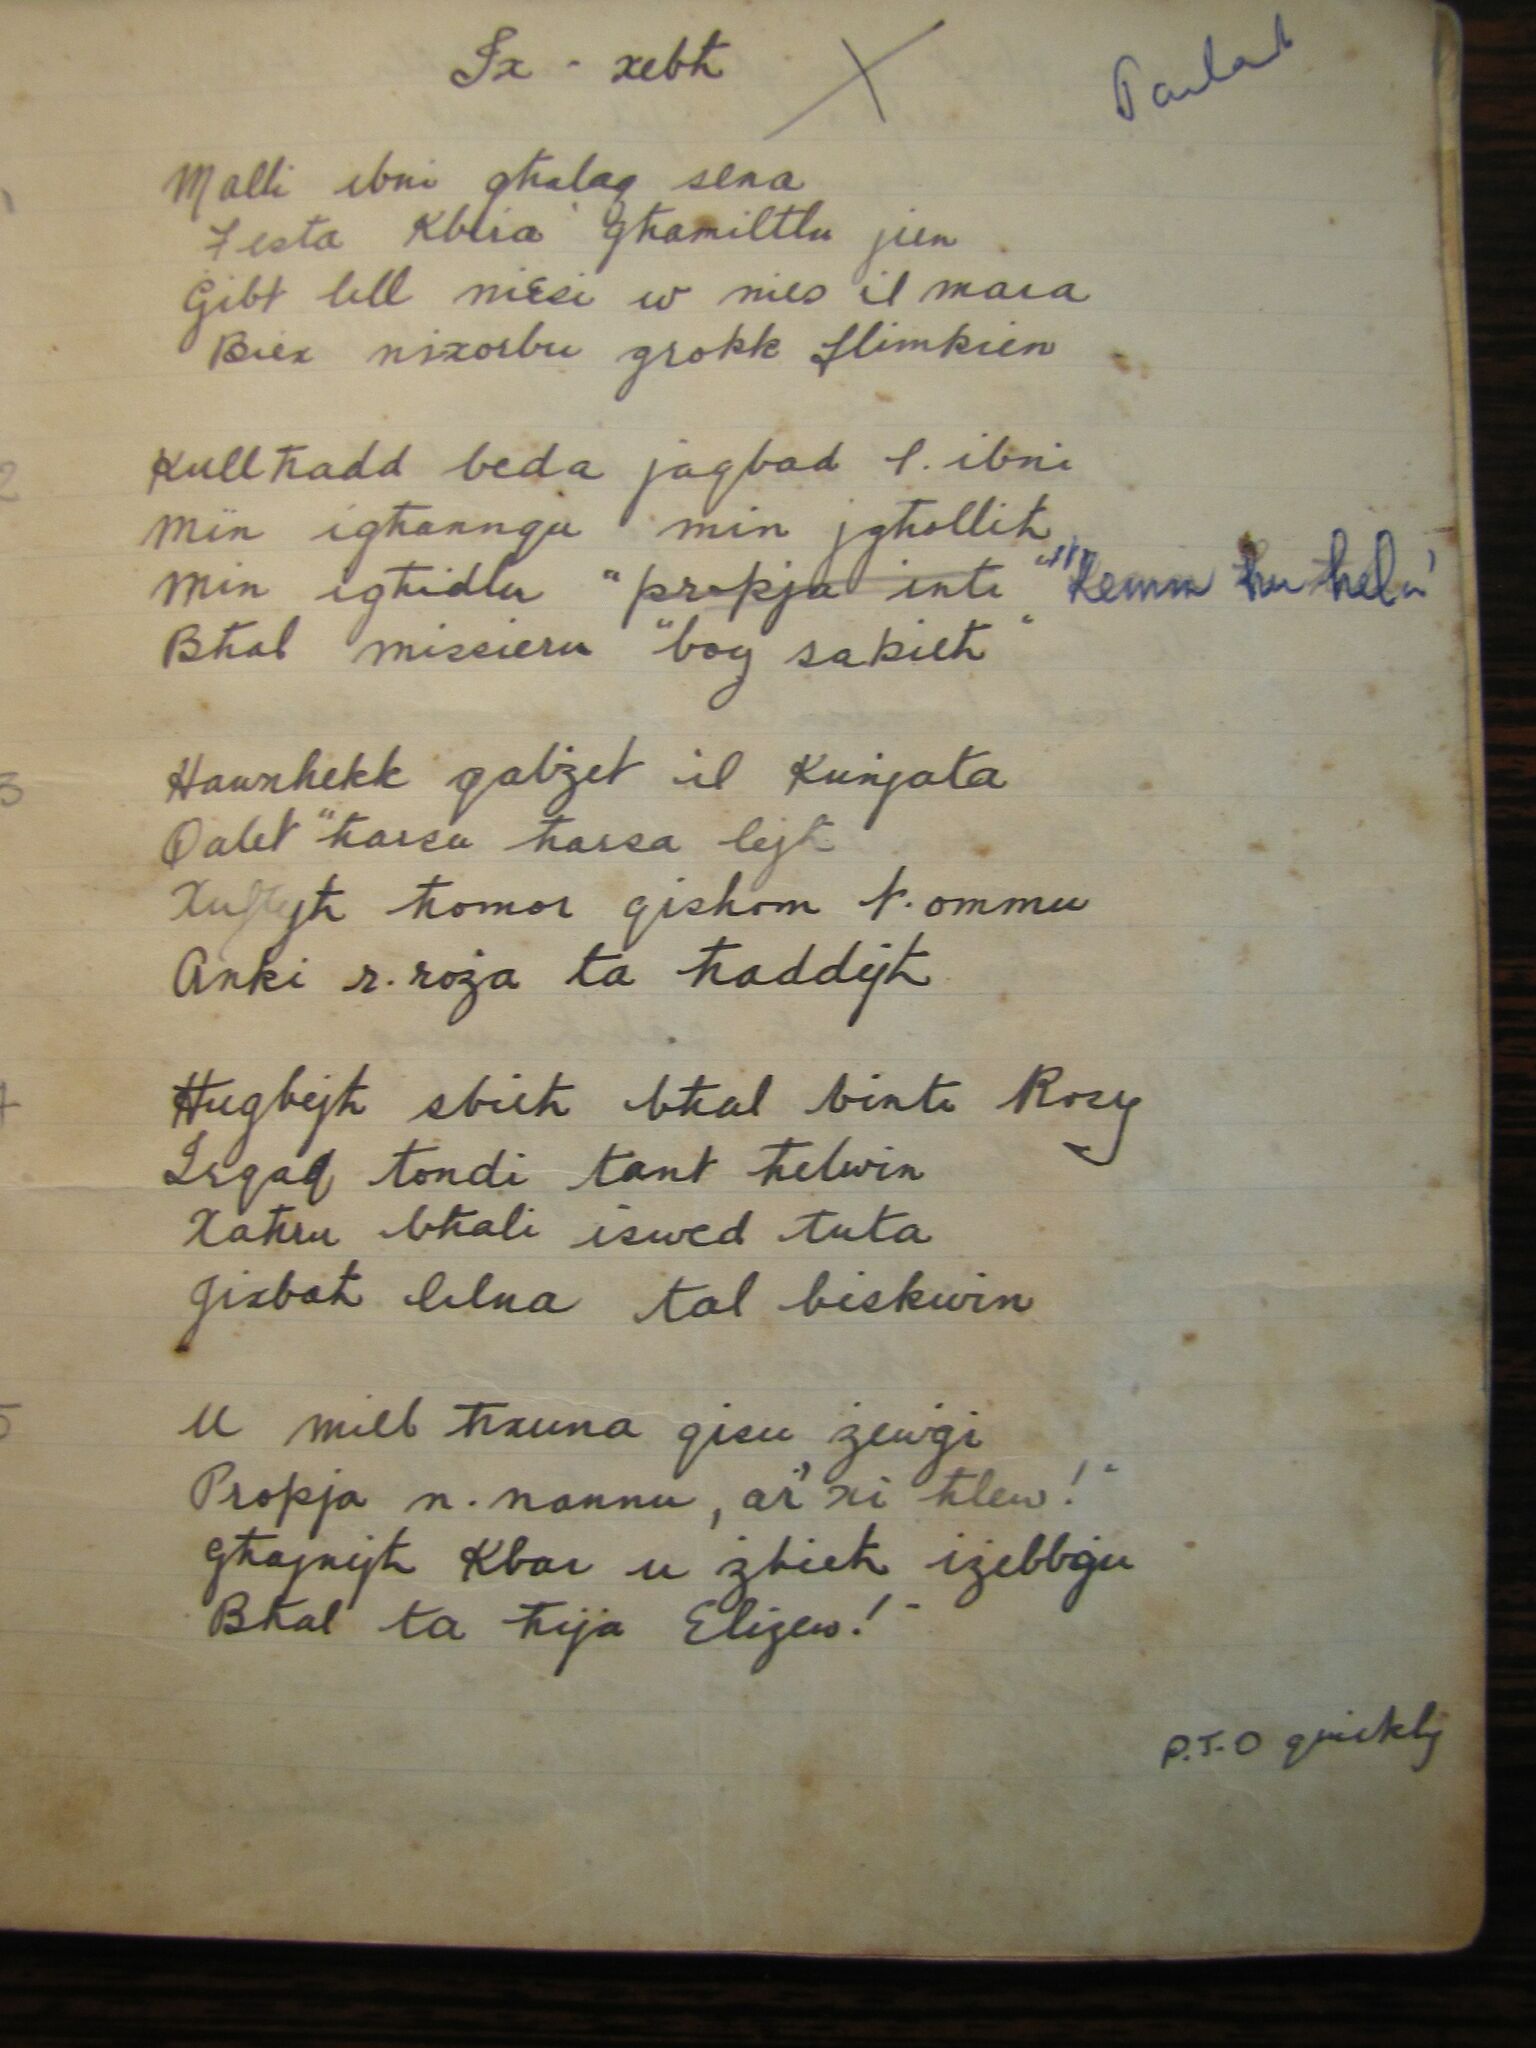 Ix - xebħ
Malli ibni għalaq sena
Festa Kbira Għamiltlu jien
Ġibt lill niesi w nies il mara
Biex nixorbu grokk flimkien
2
Kulħadd beda jaqbad l. ibni
Min igħannqu min jgħollih
Min igħidlu "propja inti "Kemm hu ħelu"
Bħal missieru "boy sabieħ"
3
Hawnhekk qabżet il Kunjata
Qalet "ħarsu ħarsa lejħ
Xuftejħ ħomor qishom t. ommu
Anki r. roża ta ħaddejħ
4
Ħuġbejħ sbieħ bħal binti Rosy
Irqaq tondi tant ħelwin
Xahru bħali iswed tuta
Jixbah lilna tal biskwin
5
U mill ħxuna qisu żewġi
Propja n. nannu, ar" xi ħlew!"
Għajnejħ Kbar u żbieħ iżebbġu
Bħal ta ħija Eliżew!"
P.T.O quickly